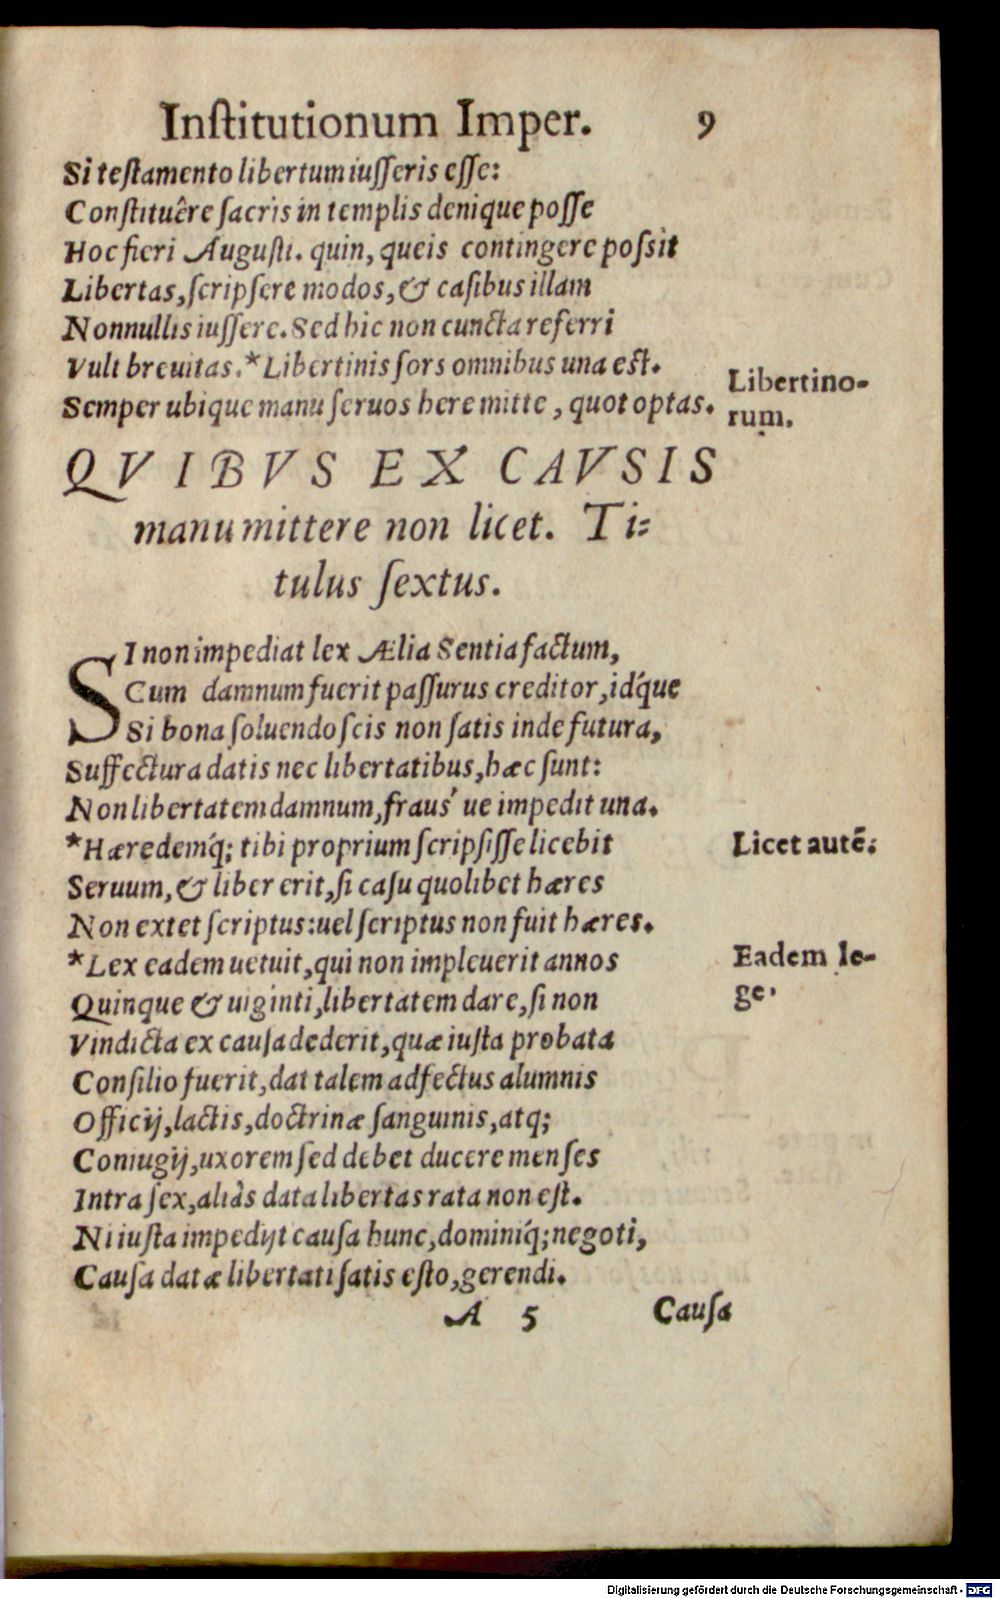 Inſtitutionum Imper. 9
Si teſtamento libertum iuſſeris eſſe:
Conſtituêre ſacris in templis denique poſſe
Hoc fieri Auguſti. quin, queis contingere poſsit
Libertas, ſcripſere modos, & caſibus illam
Nonnullis iuſſere. Sed hic non cuncta referri
Vult breuitas. *Libertinis ſors omnibus una eſt.
Libertino-
Semper ubique manu ſeruos here mitte, quot optas.
rum.
QVIBVS EX CAVSIS
manu mittere non licet. Ti-
tulus ſextus.
SI non impediat lex Ælia Sentia factum,
Cum damnum fuerit paſſurus creditor, id´que
Si bona ſoluendo ſcis non ſatis inde futura,
Suffectura datis nec libertatibus, hæc ſunt:
Non libertatem damnum, fraus´ ue impedit una.
*Hæredem´q; tibi proprium ſcripſiſſe licebit
Licet autē.
Seruum, & liber erit, ſi caſu quolibet hæres
Non extet ſcriptus: uel ſcriptus non fuit hæres.
*Lex eadem uetuit, qui non impleuerit annos
Eadem le-
ge.
Quinque & uiginti, libertatem dare, ſi non
Vindicta ex cauſa dederit, quæ iuſta probata
Conſilio fuerit, dat talem adfectus alumnis
Officij, lactis, doctrinæ ſanguinis, atq;
Coniugij, uxorem ſed debet ducere menſes
Intra ſex, aliàs data libertas rata non eſt.
Ni iuſta impedijt cauſa hunc, domini´q; negoti,
Cauſa datæ libertati ſatis eſto, gerendi.
A 5 Cauſa
Digitalisierung gefördert durch die Deutsche Forschungsgemeinschaft - DFG